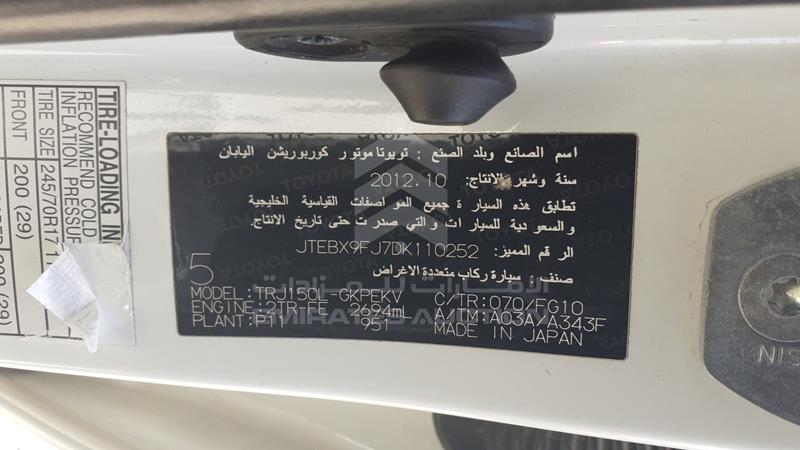 TIRE-LOADING IN
RECOMMEND COLD
INFLATION PRESSUR
TIRE SIZE 245/70R17 11
FRONT 200 (29)
اسم الصانع وبلد الصنع : تويوتا موتور كوربوريشن اليابان
سنة وشهر الانتاج: 2012.10
تطابق هذه السيارة جميع المواصفات القياسية الخليجية
والسعودية للسيارات والتي صدرت حتى تاريخ الانتاج.
الرقم المميز: JTEBX9FJ7DK110252
صنف، سيارة ركاب متعددة الاغراض
5
MODEL:TRJ150L-GKPEKV C/TR:070/FG10
ENGINE:2TR-FE 2694mL A/TM:A03A/A343F
PLANT:P11 951 MADE IN JAPAN
الإمارات للمزادات
EMIRATES AUCTION
NIS